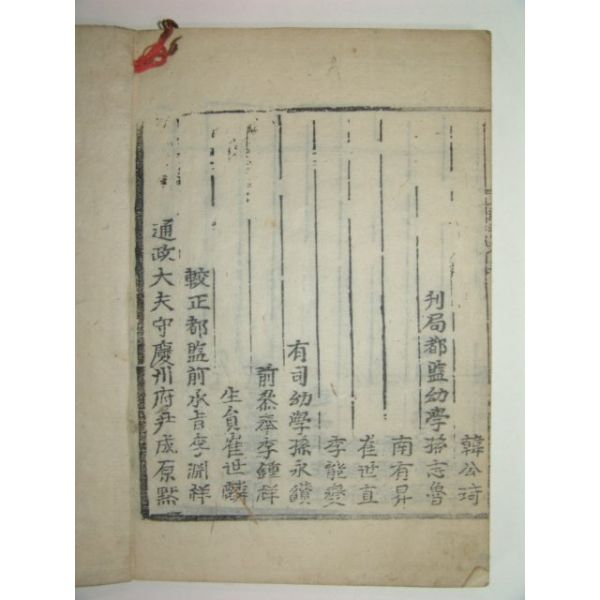 韓公琦
刊局都監幼學孫志魯
南有昇
崔世直
李能燮
有司幼學孫永鑽
前叅奉李鍾祥
生員崔世麟
較正都監前承旨李淵祥
通政大夫守慶州府尹成原默